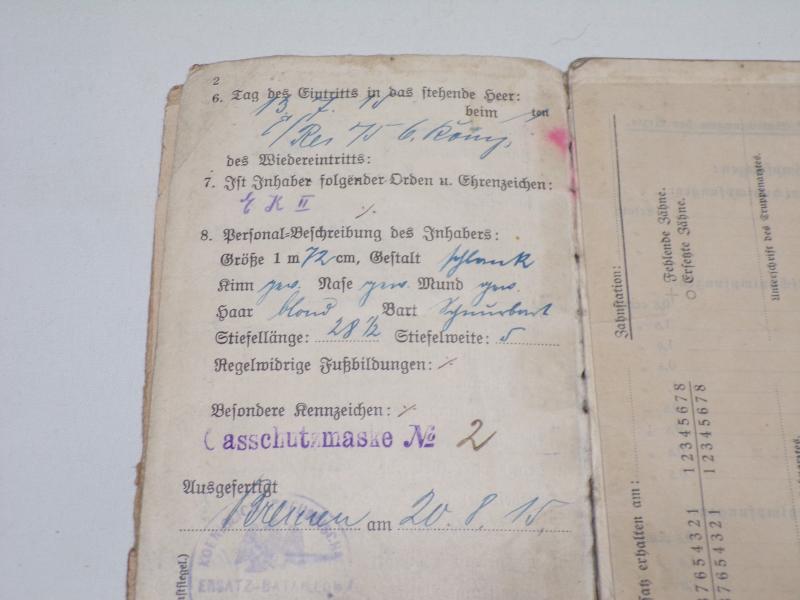 2
6. Tag des Eintritts in das stehende Heer:
13. 7. 15 beim ten
E/Res 75 6. Komp.
des Wiedereintritts:
7. Ist Inhaber folgender Orden u. Ehrenzeichen:
E K II
8. Personal-Beschreibung des Inhabers:
Größe 1 m 72 cm, Gestalt schlank
Kinn gew. Nase gew. Mund gew.
Haar blond Bart Schnurbart
Stiefellänge: 28 1/2 Stiefelweite: 5
Regelwidrige Fußbildungen: ./.
Besondere Kennzeichen: ./.
Gasschutzmaske № 2
Ausgefertigt
Bremen am 20. 8. 15.
ERSATZ-BATAILLON
Zahnstation:
+ Fehlende Zähne.
O Ersetzte Zähne.
Unterschrift des Truppenarztes.
satz erhalten am:
87654321 12345678
87654321 12345678